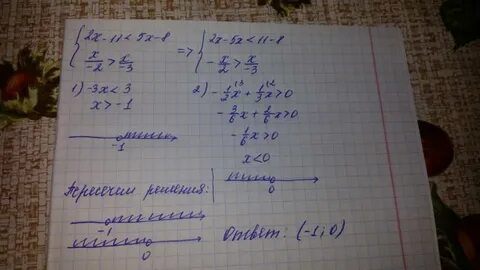 { 2x-11 < 5x-8 => { 2x-5x < 11-8
x/-2 > x/-3 - x/2 > x/-3
1) -3x < 3
x > -1
-1
2) - 1/2 x + 1/3 x > 0
- 3/6 x + 2/6 x > 0
- 1/6 x > 0
x < 0
0
Пересечем решения:
-1
0
Ответ: (-1; 0)